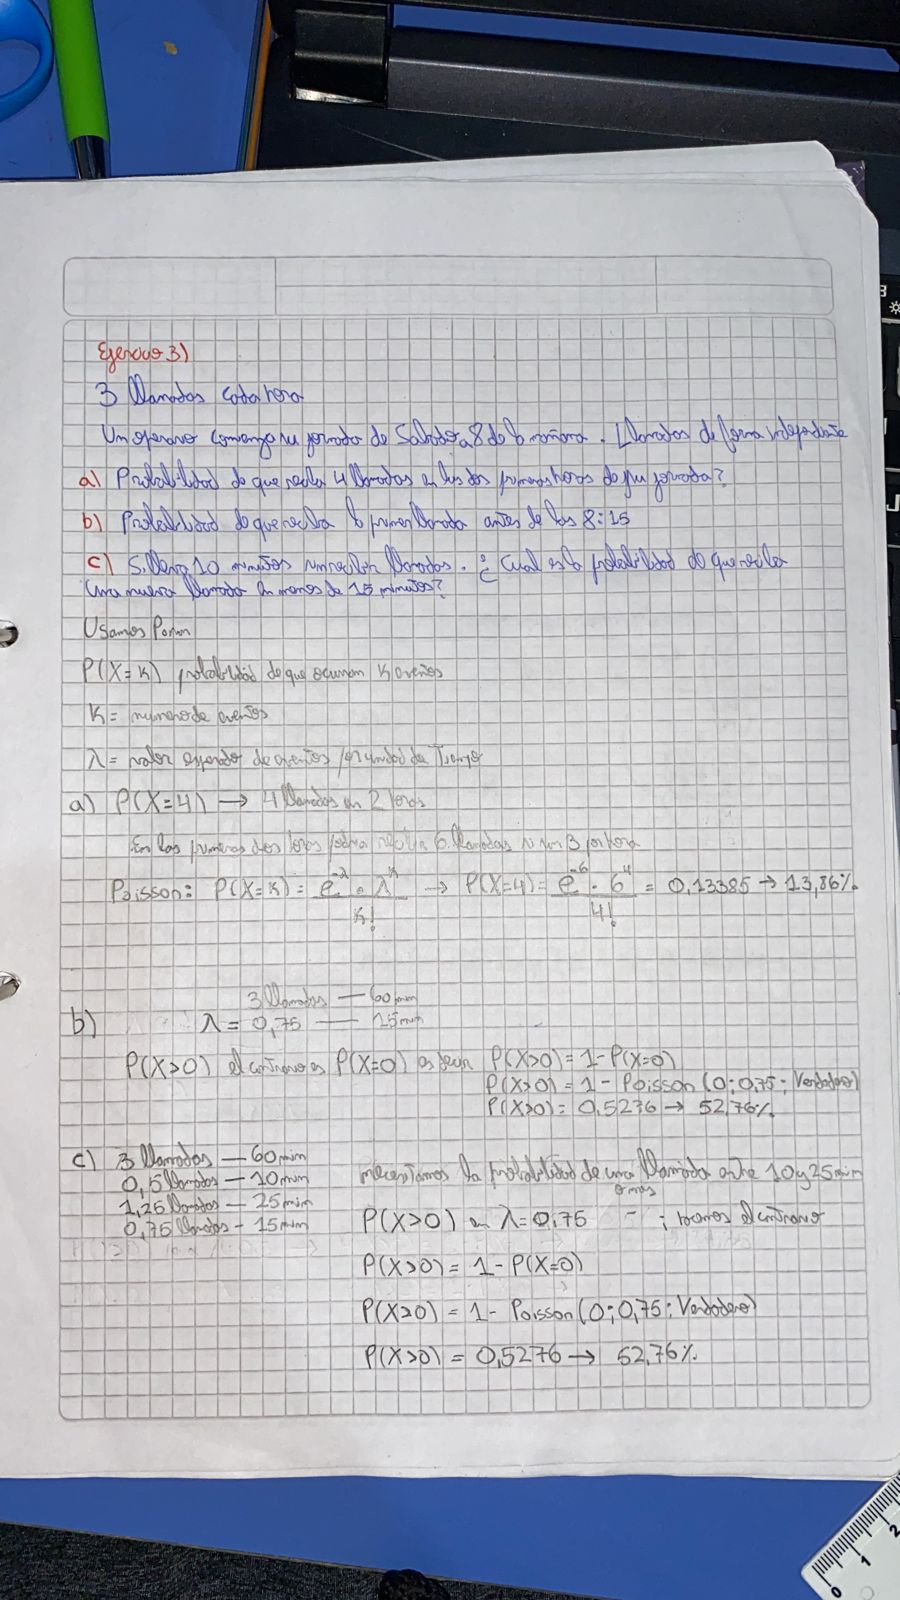 Ejercicio 3)
3 llamadas cada hora
Un operario comienza su jornada de Sabado a 8 de la mañana. Llamadas de forma independiente
a) Probabilidad de que reciba 4 llamadas en las dos primeras horas de su jornada?
b) Probabilidad de que reciba la primer llamada antes de las 8:15
c) Si lleva 10 minutos sin recibir llamadas. ¿Cual es la probabilidad de que reciba
una nueva llamada en menos de 15 minutos?
Usamos
P(X=k) probabilidad de que ocurran K eventos
K= numero de eventos
λ= valor esperado de eventos por unidad de Tiempo
a) P(X=4) → 4 llamadas en 2 horas
En las primeras dos horas podria recibir 6 llamadas si son 3 por hora
Poisson: P(X=k) = e^-λ · λ^k / k! → P(X=4) = e^-6 · 6^4 / 4! = 0,13385 → 13,86%
3 llamadas — 60 min
b) λ = 0,75 — 15 min
P(X>0) el contrario es P(X=0) es decir P(X>0) = 1-P(X=0)
P(X>0) = 1 - Poisson (0; 0,75; Verdadero)
P(X>0) = 0,5276 → 52,76%
c) 3 llamadas — 60 min
0,5 llamadas — 10 min
1,25 llamadas — 25 min
0,75 llamadas - 15 min
necesitamos la probabilidad de una llamada entre 10 y 25 min
o mas
P(X>0) en λ=0,75 ; el contrario
P(X>0) = 1 - P(X=0)
P(X>0) = 1 - Poisson (0; 0,75; Verdadero)
P(X>0) = 0,5276 → 52,76%
B
J
0 1 2